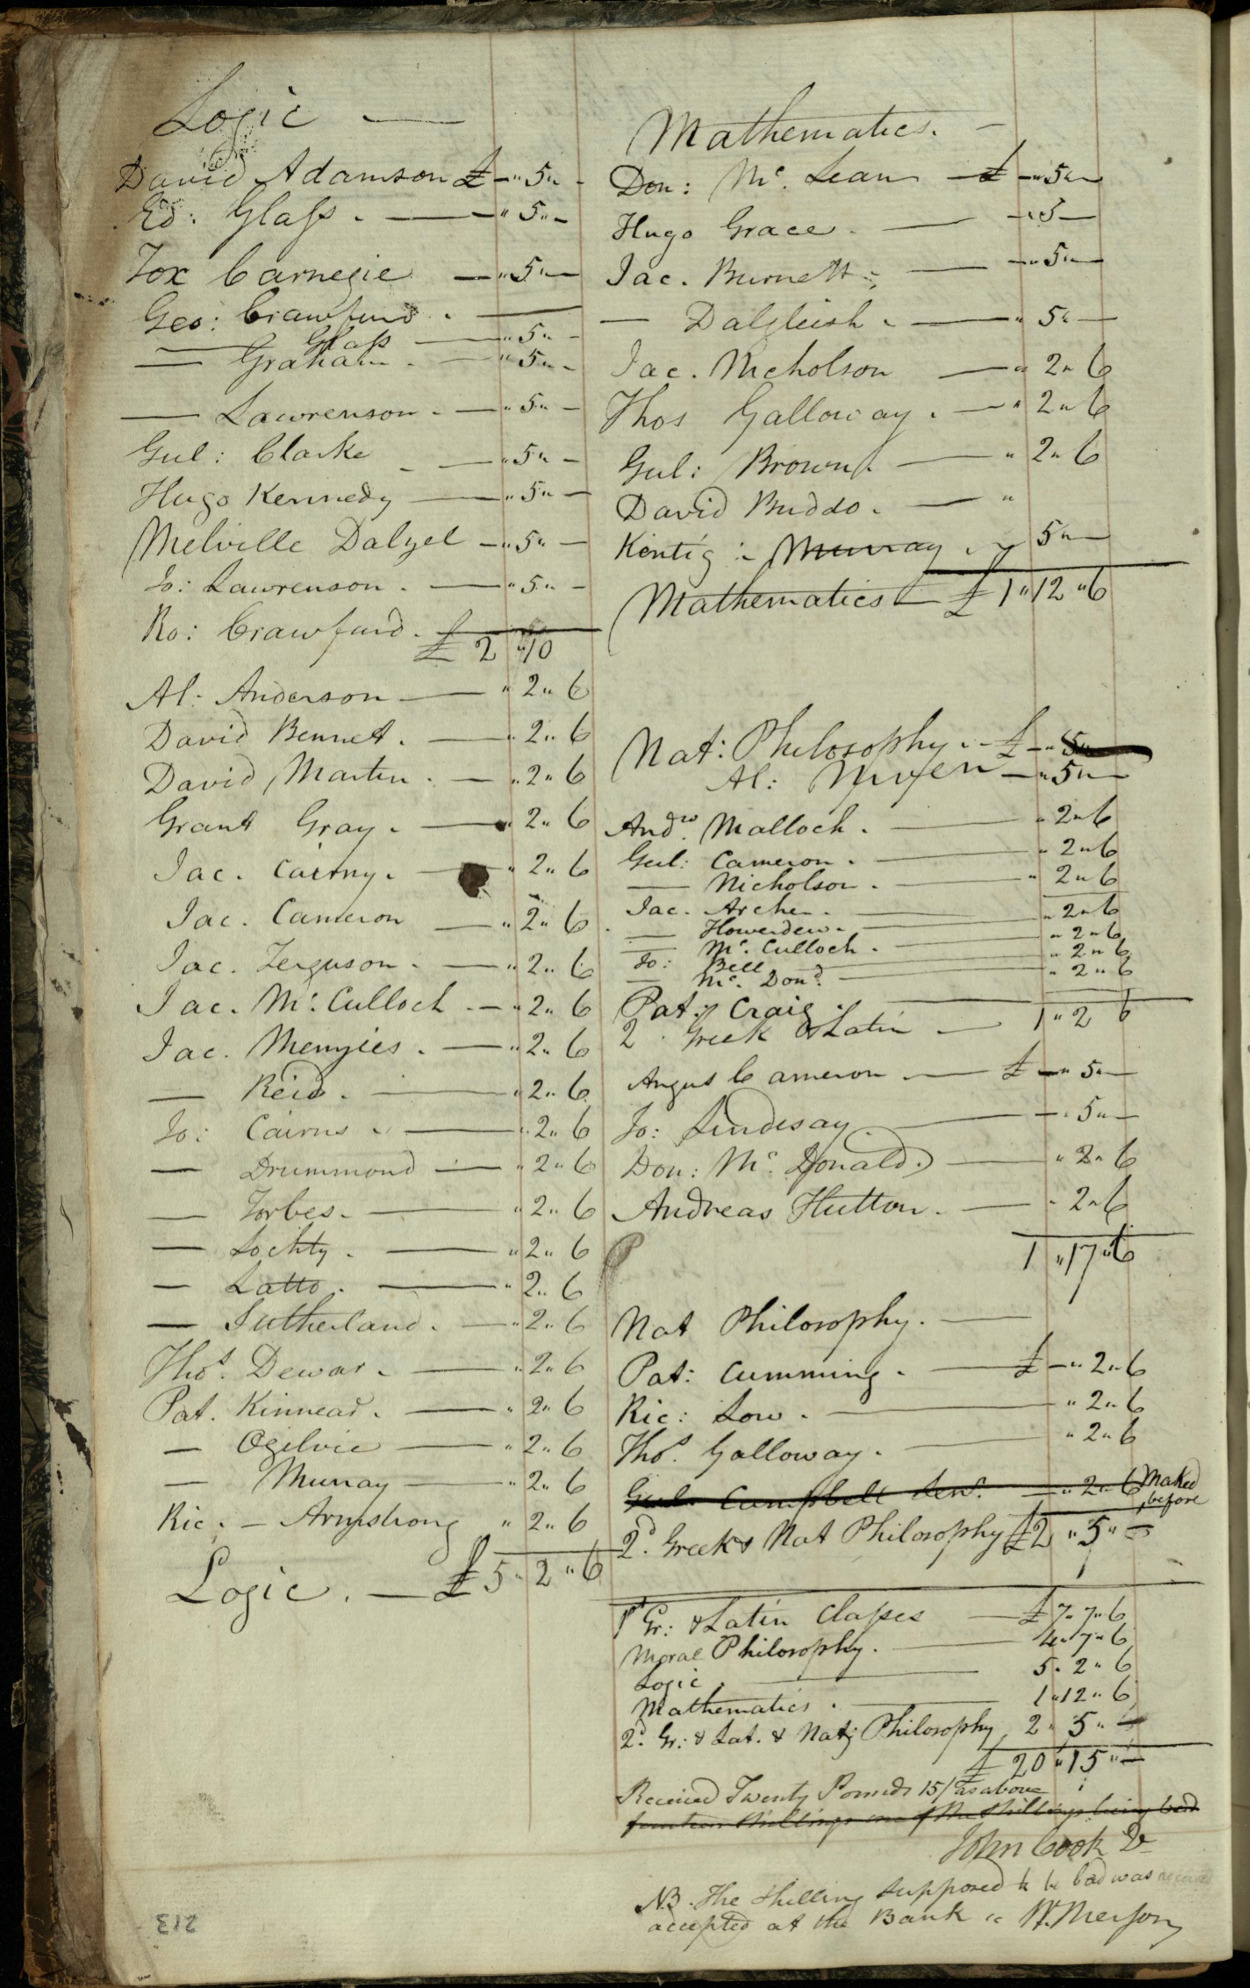 Logic —
David Adamson £ - " 5 " -
Ed: Glass. — " 5 " -
Fox Carnegie — " 5 " -
Geo: Crawfurd. —
— Glass — " 5 " -
— Graham. — " 5 " -
— Lawrenson. — " 5 " -
Gul: Clarke — " 5 " -
Hugo Kennedy — " 5 " -
Melville Dalyel — " 5 " -
Jo: Lawrenson. — " 5 " -
Ro: Crawfurd.
£ 2 " 10
Al: Anderson — " 2 " 6
David Bennet. — " 2 " 6
David Martin. — " 2 " 6
Grant Gray. — " 2 " 6
Jac. Cairny. — " 2 " 6
Jac. Cameron — " 2 " 6
Jac. Ferguson. — " 2 " 6
Jac. Mc. Culloch. — " 2 " 6
Jac. Menzies. — " 2 " 6
— Reid. — " 2 " 6
Jo: Cairns. — " 2 " 6
— Drummond — " 2 " 6
— Forbes. — " 2 " 6
— Lochty. — " 2 " 6
— Latto. — " 2 " 6
— Sutherland. — " 2 " 6
Thos. Dewar. — " 2 " 6
Pat. Kinnear. — " 2 " 6
— Ogilvie — " 2 " 6
— Murray — " 2 " 6
Ric. — Armstrong " 2 " 6
Logic. — £ 5 " 2 " 6
Mathematics. —
Don: Mc. Lean — £ - " 5 " -
Hugo Grace. — " 5 —
Jac. Burnett — " 5 " —
— Dalgleish. — " 5 " —
Jac. Nicholson — " 2 " 6
Thos Galloway. — " 2 " 6
Gul: Brown. — " 2 " 6
David Buddo. — "
Kentig: Murray. 5 " —
Mathematics — £ 1 " 12 " 6
Nat: Philosophy. — £ - " 5 "
Al: Niven — " 5 " —
Andw. Malloch. — " 2 " 6
Gul: Cameron. — " 2 " 6
— Nicholson. — " 2 " 6
Jac. Archer. — " 2 " 6
— Howerden. — " 2 " 6
— Mc. Culloch. — " 2 " 6
Jo: Bell — " 2 " 6
— Mc. Dond. —
Pat: Craig. — 1 " 2 6
2 Greek & Latin —
Angus Cameron — £ — " 5 " —
Jo: Lindesay. — " 5 " —
Don: Mc. Donald. — " 2 " 6
Andreas Hutton. — " 2 " 6
1 " 17 " 6
Nat Philosophy. —
Pat: Cumming. — £ — " 2 " 6
Ric: Low. — " 2 " 6
Thos. Galloway. — " 2 " 6
Gul. Campbell Senr. — " 2 " 6 Maked before
2d. Greek & Nat Philosophy £2 " 5 " —
1st Gr: & Latin Classes — £ 7 " 7 " 6
Moral Philosophy. — 4 " 7 " 6
Logic — 5 " 2 " 6
Mathematics. — 1 " 12 " 6
2d. Gr: & Lat. & Nat: Philosophy 2 " 5 " —
£ 20 " 15 " —
Received Twenty Pounds 15/ as above
fourteen shillings one of the shillings being bad
John Cook
NB. The shilling supposed to be bad was
accepted at the Bank
213